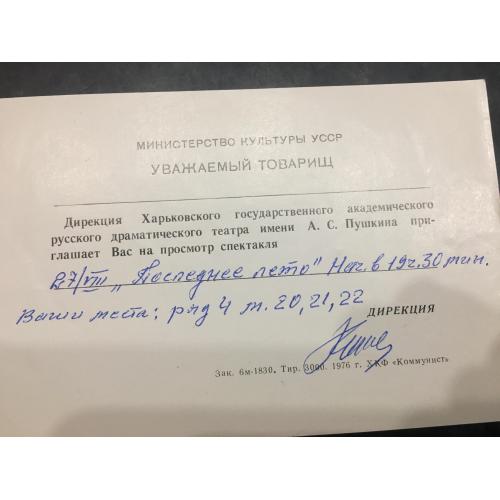 МИНИСТЕРСТВО КУЛЬТУРЫ УССР
УВАЖАЕМЫЙ ТОВАРИЩ
Дирекция Харьковского государственного академического
русского драматического театра имени А. С. Пушкина при-
глашает Вас на просмотр спектакля
27/VIII „Последнее лето" Нач. в 19 ч. 30 мин.
Ваши места: ряд 4 м. 20, 21, 22
ДИРЕКЦИЯ
Зак. 6м-1830. Тир. 3000. 1976 г. ХКФ «Коммунист»